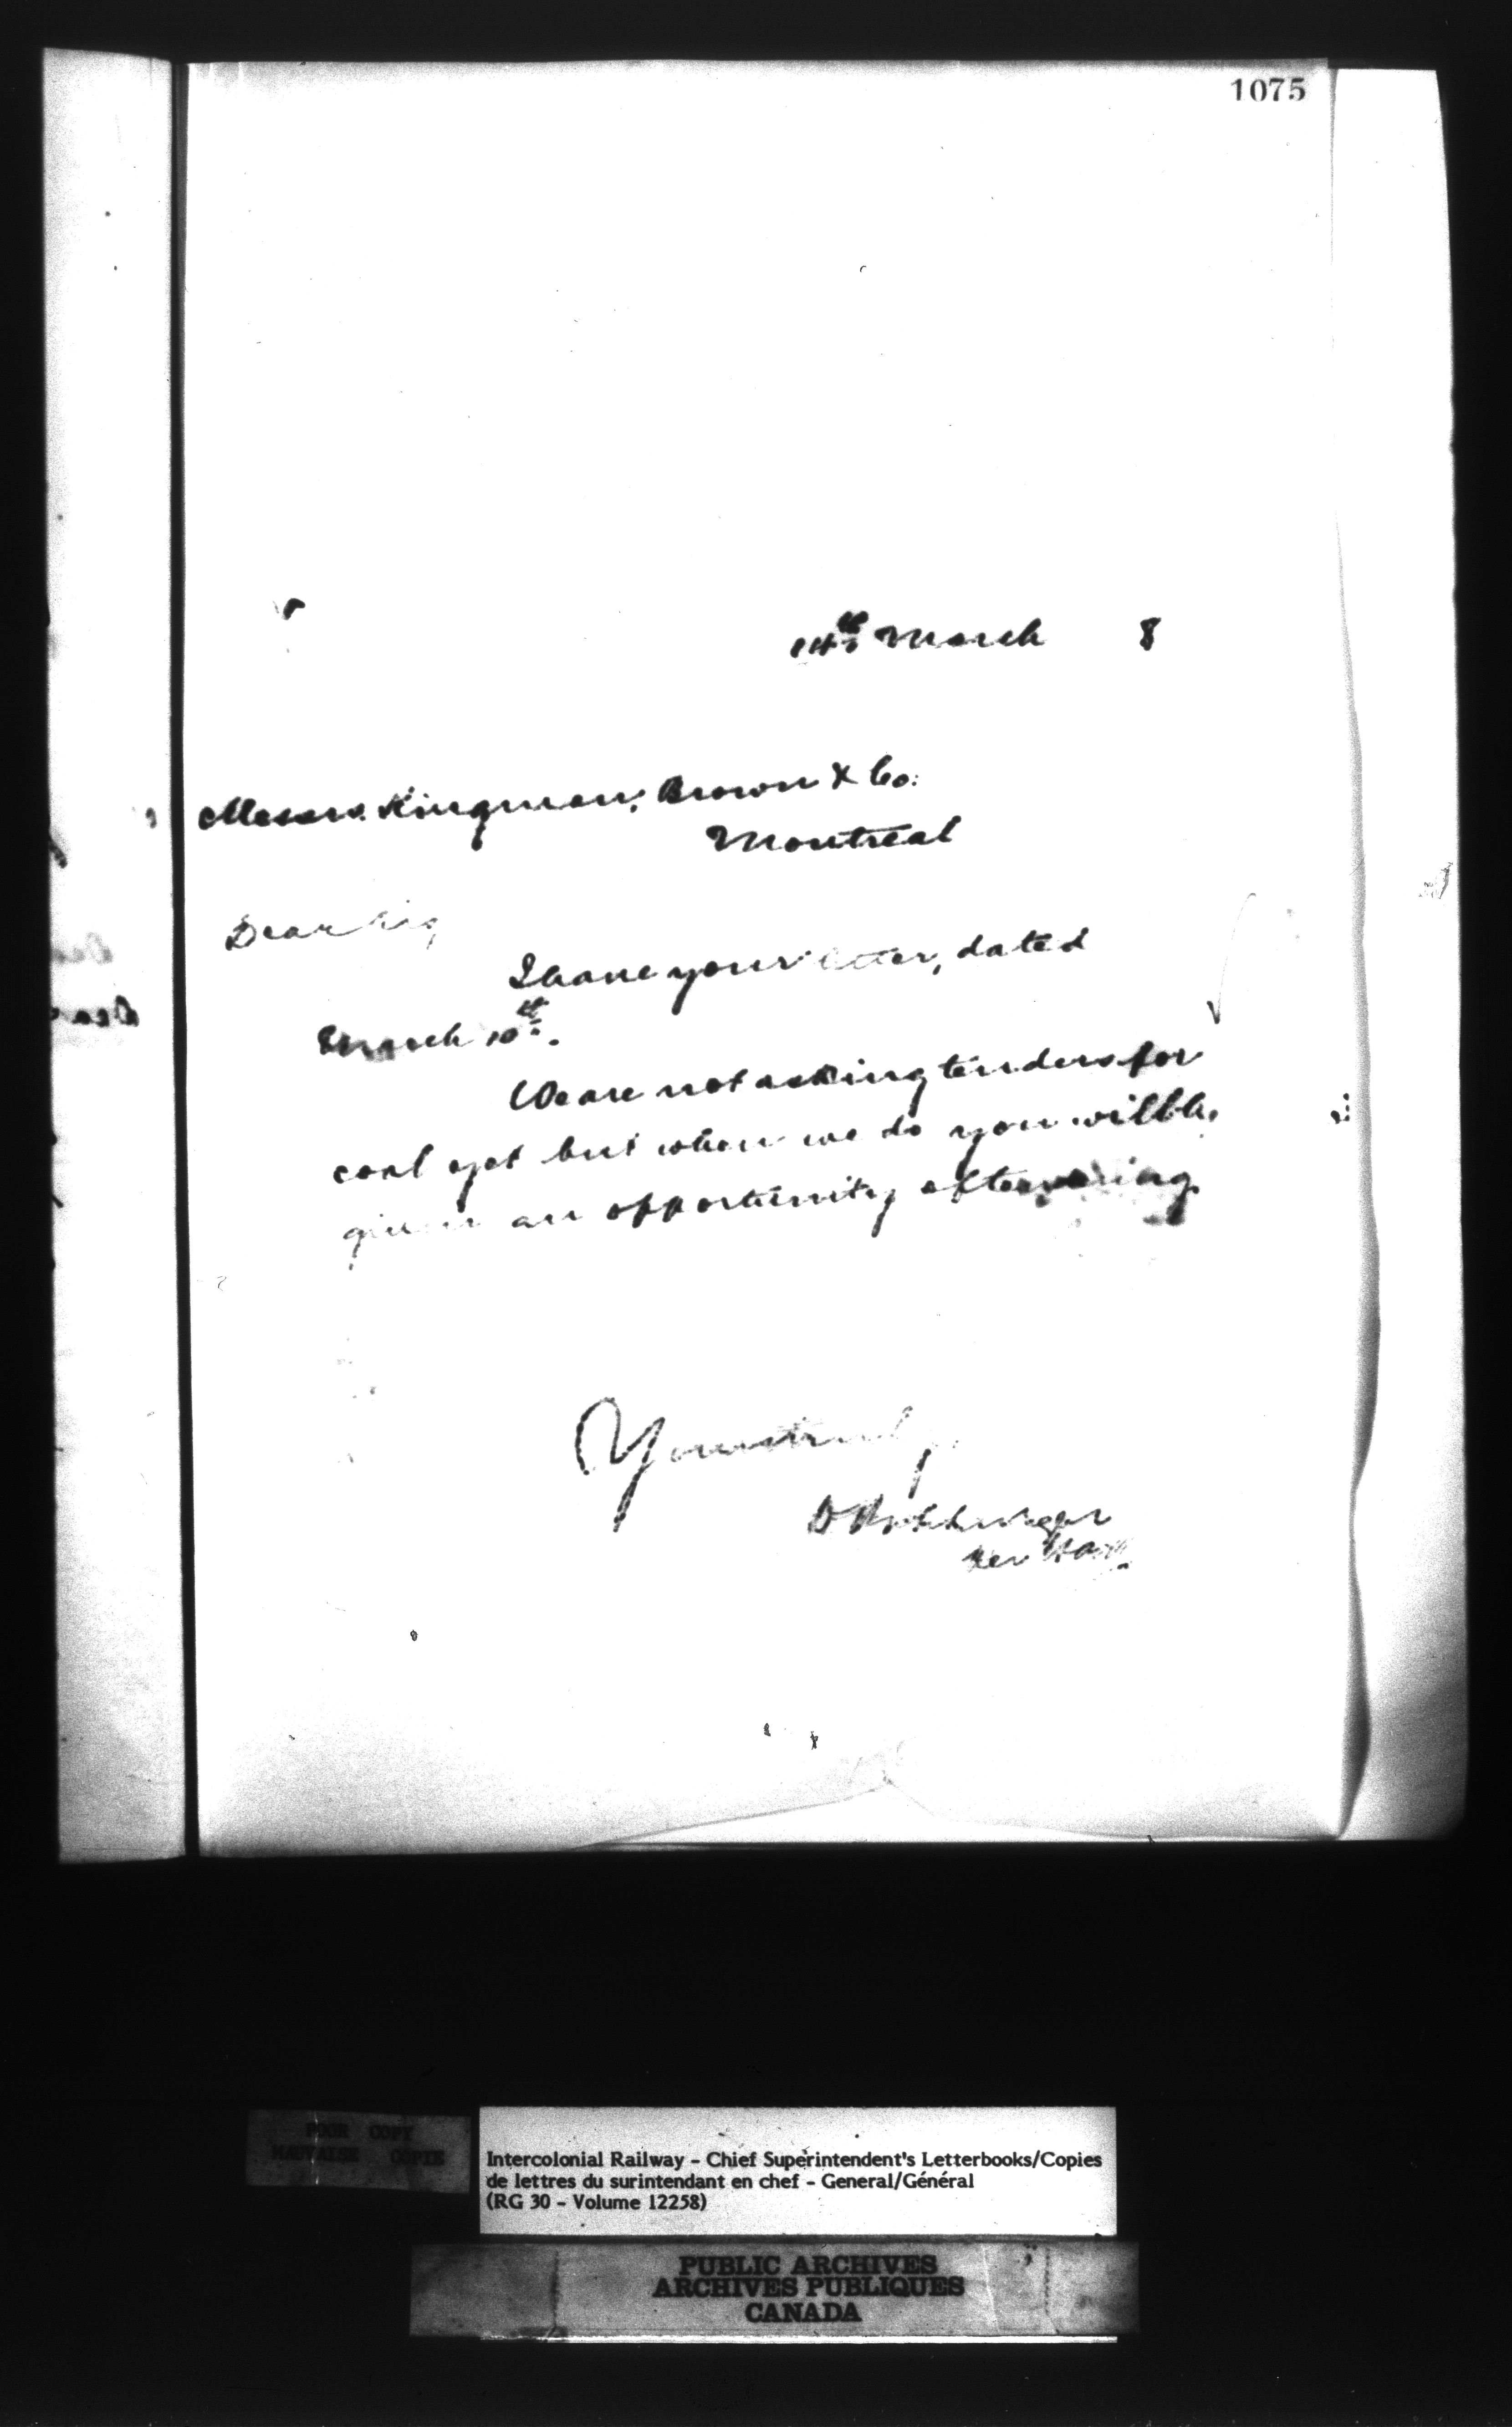 1075
14th March 8
Messrs. Kingman, Brown & Co:
Montreal
Dear Sir,
I have your letter, dated
March 10th.
We are not asking tenders for
coal yet but when we do you will be
given an opportunity of tendering.
Yours truly
D Pottinger
POOR COPY
MAUVAISE COPIE
Intercolonial Railway - Chief Superintendent's Letterbooks/Copies
de lettres du surintendant en chef - General/Général
(RG 30 - Volume 12258)
PUBLIC ARCHIVES
ARCHIVES PUBLIQUES
CANADA